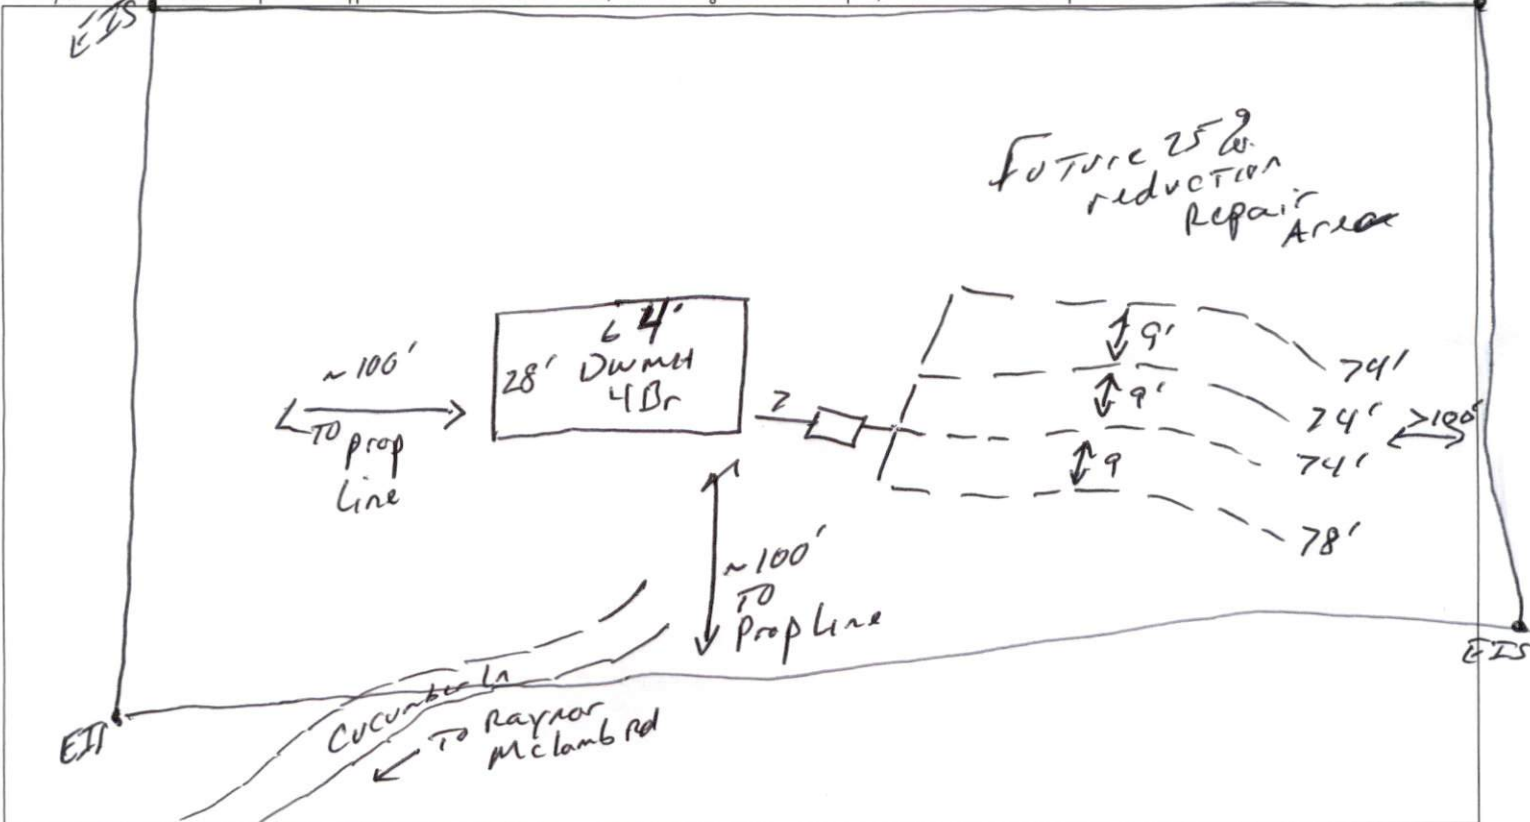 EIS
Future 25%
reduction
Repair
Area
64'
28' DWMH
4Br
~100'
To prop
line
9'
9'
9
74'
74'
74'
78'
>100'
~100'
To
Prop Line
EIS
EIS
Cucumber Ln
To Raynor
McLamb Rd